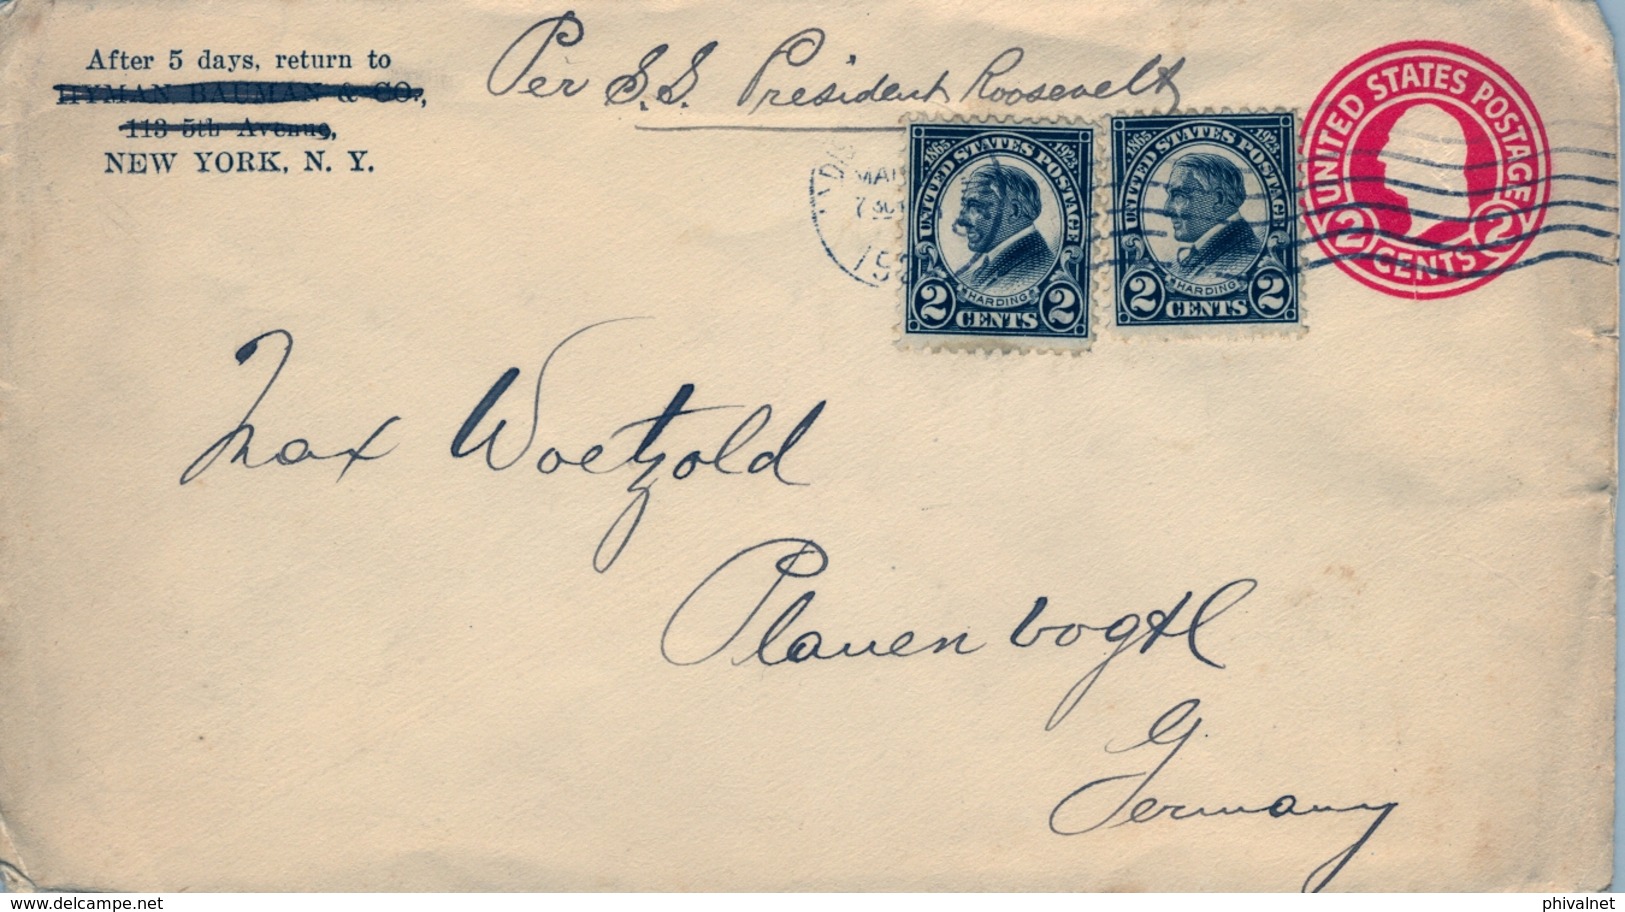 After 5 days, return to
HYMAN BAUMAN & CO.,
113 5th Avenue,
NEW YORK, N. Y.
Per S.S. President Roosevelt
UNITED STATES POSTAGE
2 CENTS 2
1865 1923
UNITED STATES POSTAGE
HARDING
2 CENTS 2
1865 1923
UNITED STATES POSTAGE
HARDING
2 CENTS 2
MAR
7 30
192
Max Woetzold
Plauen Vogtl
Germany
www.delcampe.net
phivalnet